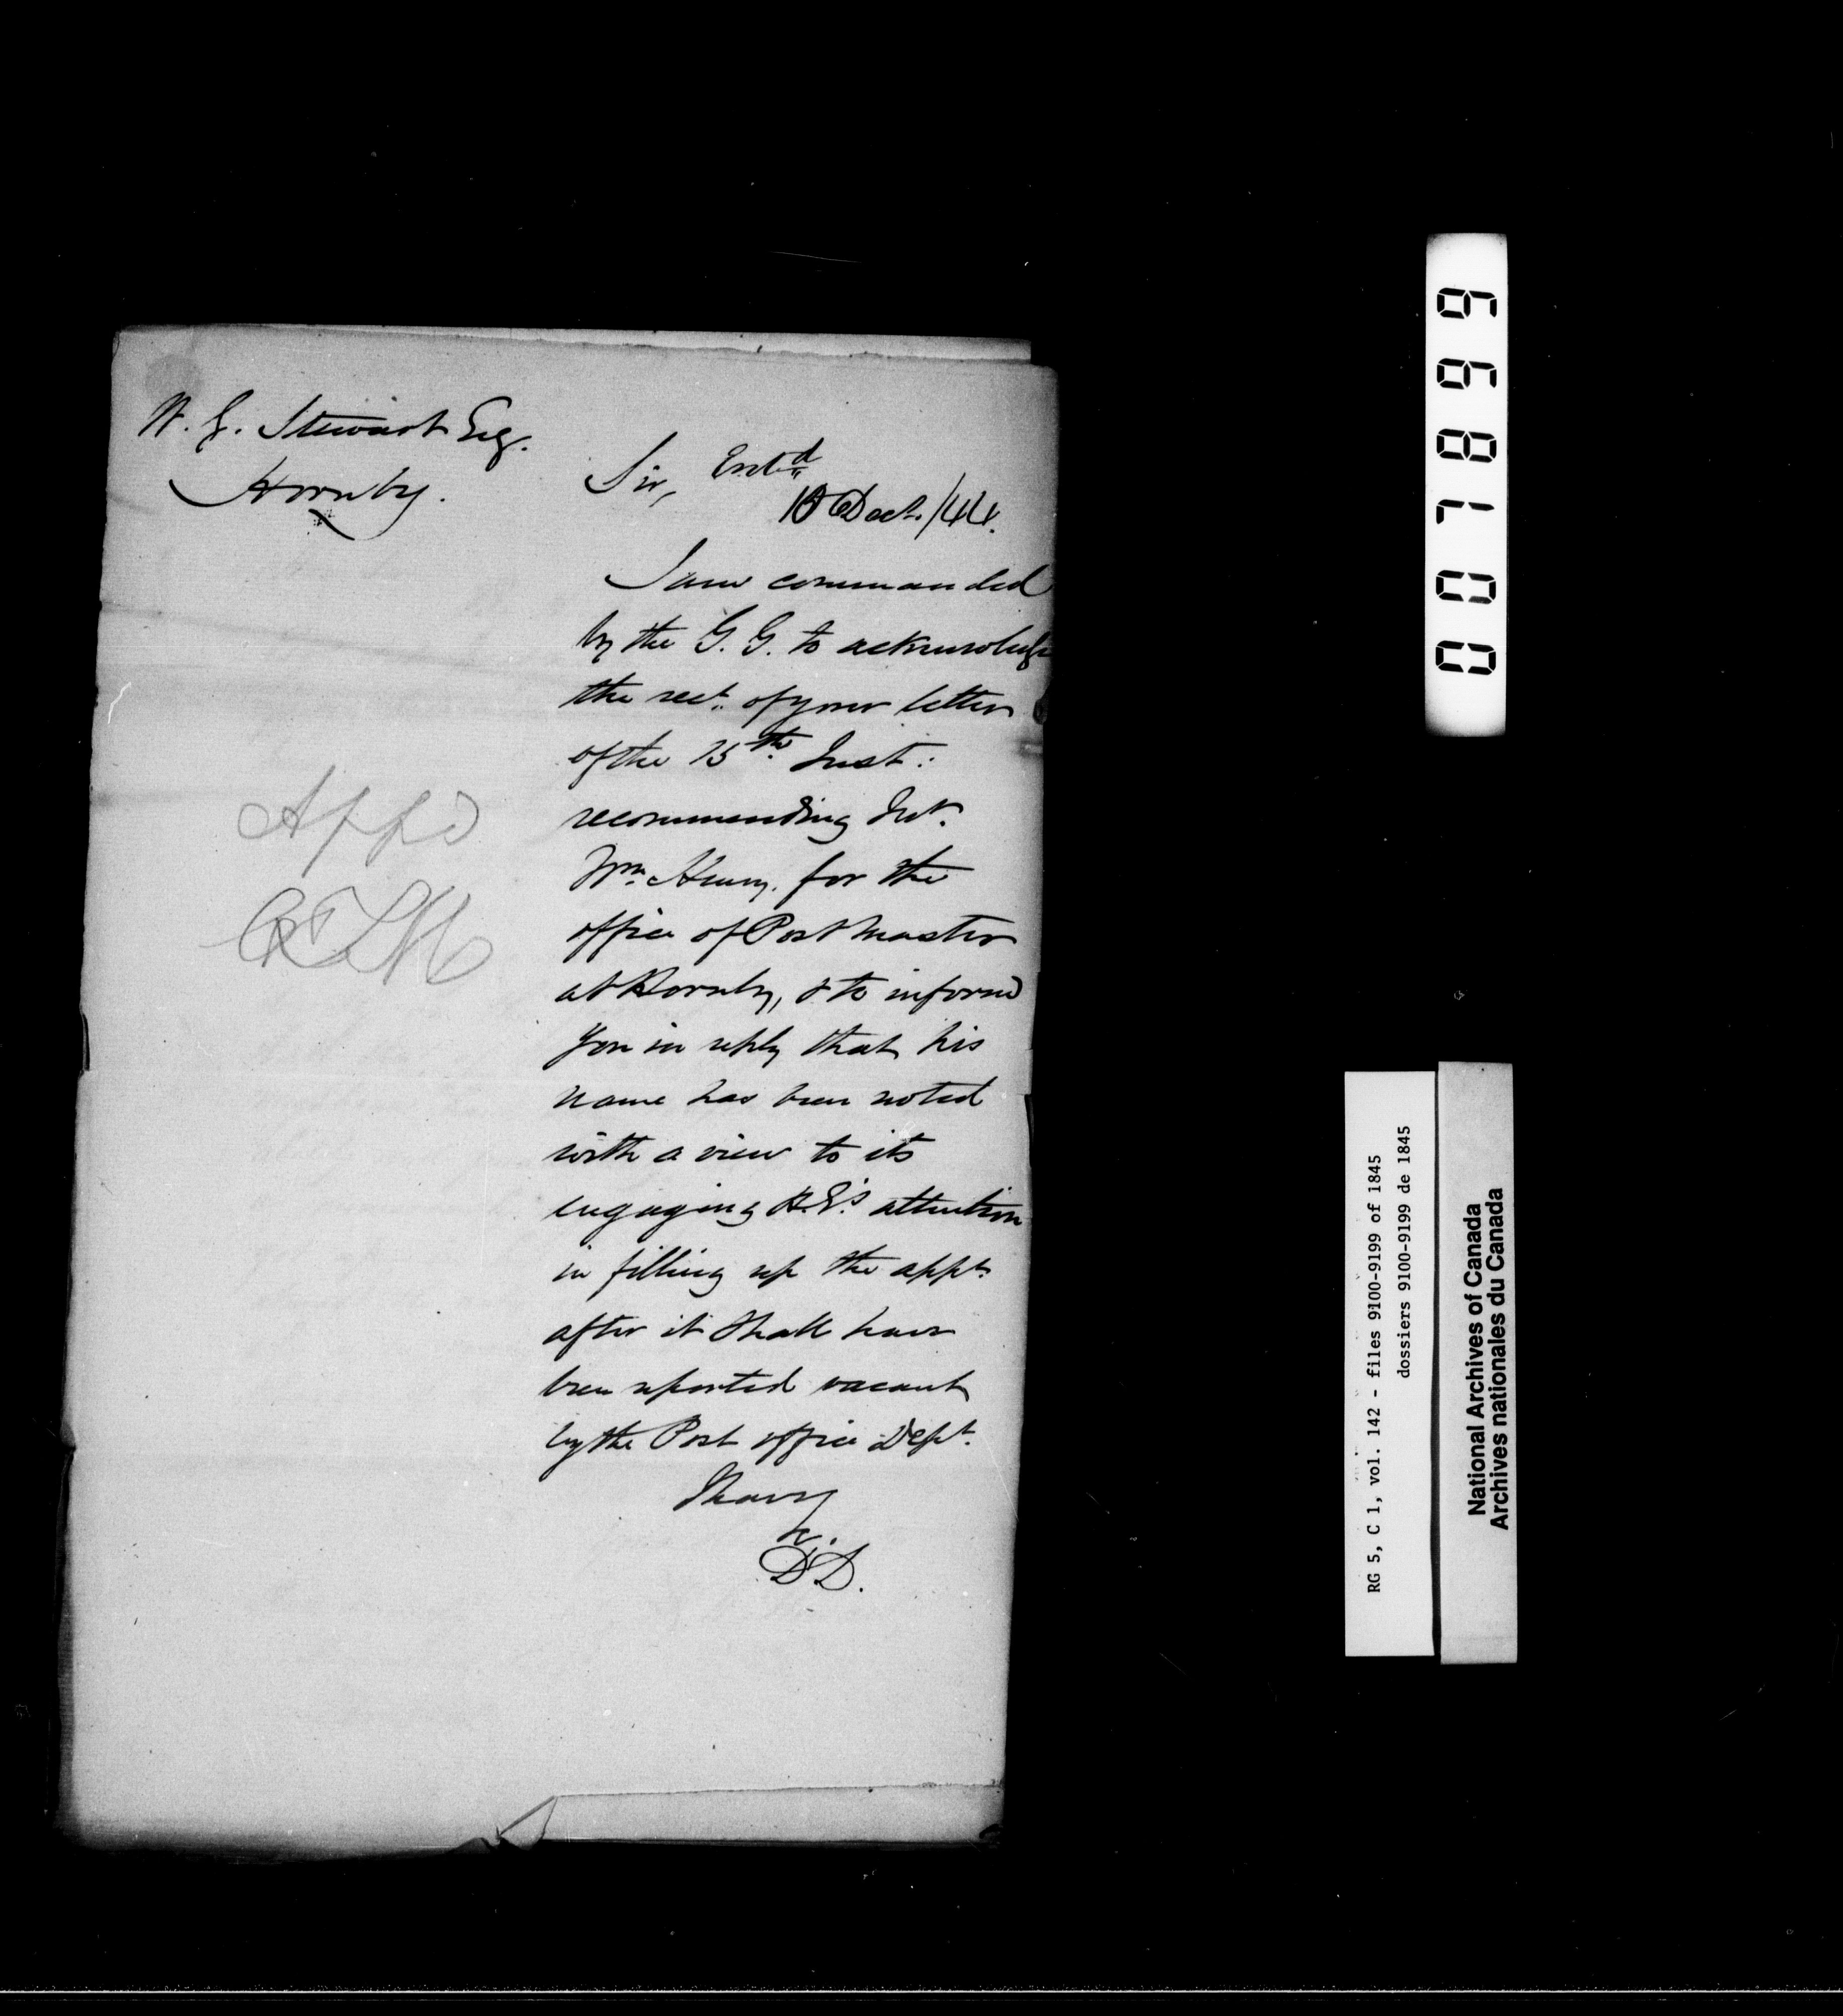 W. J. Stewart Esq.
Hornby.
Sir, Entd
Dect. /44.
I am commanded
by the G. G. to acknowledge
the rect. of your letter
of the 15th Inst:
recommending Mr.
Wm. Henry. for the
office of Post Master
at Hornby, & to inform
you in reply that his
name has been noted
with a view to its
engaging H.E's attention
in filling up the appt.
after it shall have
been reported vacant
by the Post office Dept.
I have
&c.
D.D.
Appd
007899
RG 5, C 1, vol. 142 - files 9100-9199 of 1845
dossiers 9100-9199 de 1845
National Archives of Canada
Archives nationales du Canada